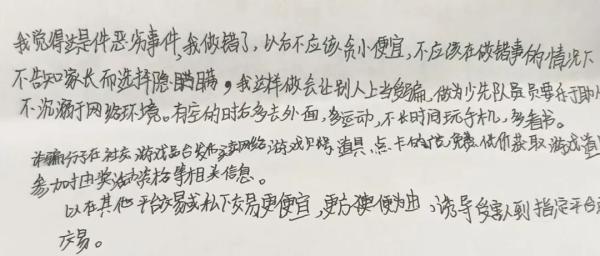 我觉得这是件恶劣事件,我做错了,以后不应该贪小便宜,不应该在做错事的情况下
不告知家长而选择隐瞒,我这样做会让别人上当受骗,做为少先队员要乐于助
不沉溺于网络环境。有空的时后多去外面,多运动,不长时间玩手机,多看书。
诈骗分子在社交 游戏平台发布买卖网络游戏账号 道具,点卡的 免费 获取 游戏道
参加抽奖活动 等相关信息。
以在其他平台交易或私下交易更便宜,更方便为由、诱导受害人到指定平台
交易。